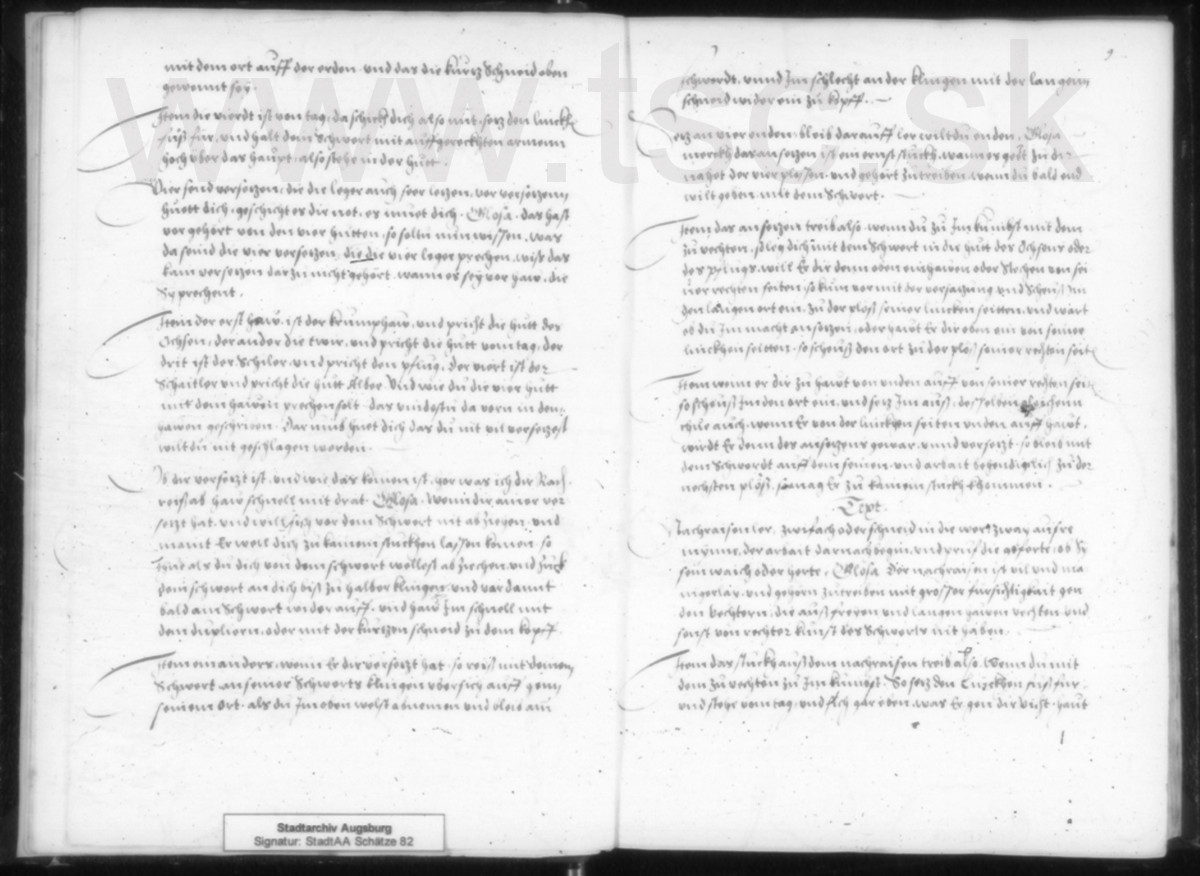 mit dem ort auff der erden vnd das die kurtz Schneid oben
gewennt sey.
Item die vierdt ist von tag, da schick dich also mit, setz den linckhe
fuß für, vnd halt dein Schwert mit auffgereckhten armenn
hoch vber das haupt, also stehe in der hutt.
Vier seind versetzen, die die leger auch seer letzen, vor versetzenn
huett dich, geschicht es dir not, es müet dich. Glosa. das hast
vor gehört von den vier hütten, so soltu nun wissen, was
da seind die vier versetzen, die die vier leger prechen, wiß das
kain versetzen darzu nicht gehört, wann es sey vor haw, die
Sy prechent.
Item der erst haw, ist der krumphaw, vnd pricht die hutt des
Ochsen, der ander die twir, vnd pricht die hutt vom tag, der
drit ist der Schiler, vnd pricht den pflug, der viert ist der
Schaitler vnd pricht die hutt Alber. Vnd wie du die vier hutt
mit den hawen prechen solt, das vindestu da vorn in den
häwen geschriben. Darumb huet dich das du nit vil versetzest
wiltu nit geschlagen werden.
Ist dir versetzt ist, vnd wie das komen ist, her was ich dir Rath
reiß ab haw schnell mit drat. Glosa. Wenn dir ainer ver
setzt hat, vnd will sich vor dem Schwert nit abziehen, vnd
maint Er woll dich zu kainem stuckhen lassen komen, so
thue als du dich von dem schwert wollest abziechen, vnd zuck
dein schwert an dich biß zu halber klingen, vnd var damit
bald am Schwert wider auff, vnd haw Im schnell mit
dem duplieren, oder mit der kurtzen schneid zu dem kopff.
Item ein anders, wenn Er dir versetzt hat, so reiß mit deinem
Schwert an seiner Schwerts klingen vbersich auff gein
seinem ort, als du Im oben wolst abnemen vnd bleib am
9
schwerdt, vnnd Im schlecht an der klingen mit der langenn
schneid wider ein zu kopff.
Setz an vier enden, bleib darauff ler wiltu enden. Glosa
merckh das ansetzen ist ein ernst stuckh, wann es get zu der
nahet der vier plossen, vnd gehört zutreiben, wenn du bald end
wilt geben mit dem Schwert.
Item das ansetzen treib also, wenn du zu Im kumbst mit dem
zu vechten, so leg dich mit dem Schwert in die hut des Ochsens oder
des pflugs, will Er dir denn oben einhawen oder Stechen von sei
ner rechten seiten, so kum vor mit der versatzung vnd Scheuß Im
den langen ort ein, zu der ploß seiner lincken seitten, vnd wart
ob du Im macht ansetzen, oder hawt Er dir oben ein von seiner
linckhen seitten, so scheuß den ort zu der ploß seiner rechten seit
Item wenn er dir zu hawt von vnden auff von seiner rechten sei
so scheuß Im den ort ein, vnd setz Im auff, desselben gleichenn
thue auch, wenn Er von der linckhen seiten vnden auff hawt,
wirdt Er denn des ansetzens gewar, vnnd versetzt, so bleib mit
dem Schwerdt auff dem seinen, vnd arbait behendigclich zu der
nechsten plöß, so mag Er zu kainem stuckh khommen.
Text.
Nachraisen ler, zwifach oder schneid in die wer, zway ausre
mynne, der arbait darnach begin, vnd prüf die geferte, ob Sy
sein waich oder herte. Glosa. Der nachraisen ist vil vnd ma
nigerlay, vnd gehern zutreiben mit grosser fürsichtigkait gen
den vechtern, die auß freyen vnd langen hawen vechten, vnd
sonst von rechter kunst des Schwerts nit haben.
Item das stuckh auß dem nachraisen treib also. Wenn du mit
dem zuvechten zu Im kumbst. So setz den Linckhen fuß für,
vnd stehe vom tag, vnd sich gar eben, was Er gen dir vicht, haut
Stadtarchiv Augsburg
Signatur: StadtAA Schätze 82
www.tsc.sk